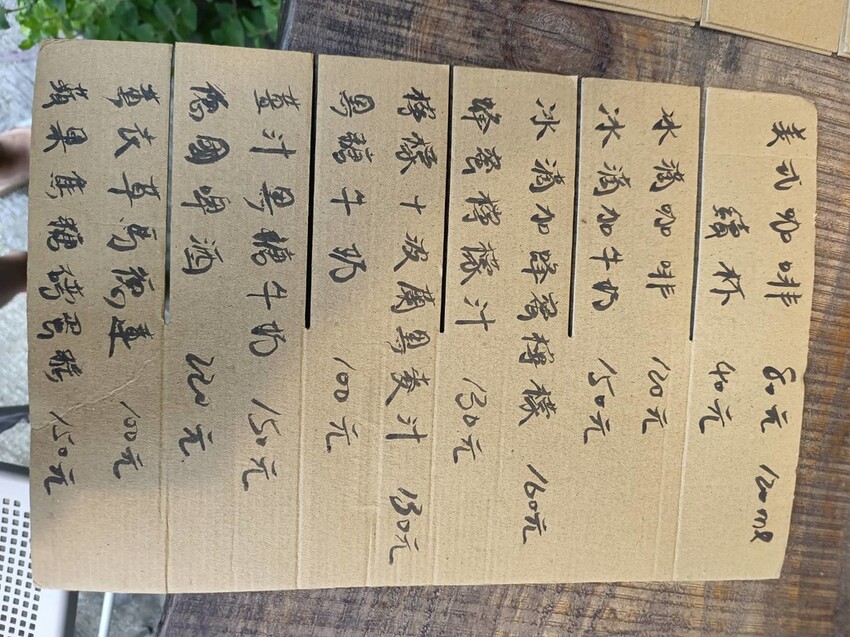 美式咖啡 80元 120ml
續杯 40元
冰滴咖啡 120元
冰滴加牛奶 150元
冰滴加蜂蜜檸檬 160元
蜂蜜檸檬汁 130元
檸檬+波蘭黑麥汁 130元
黑糖牛奶 100元
薑汁黑糖牛奶 150元
德國啤酒 220元
薰衣草馬德蓮 100元
蘋果焦糖磅蛋糕 150元